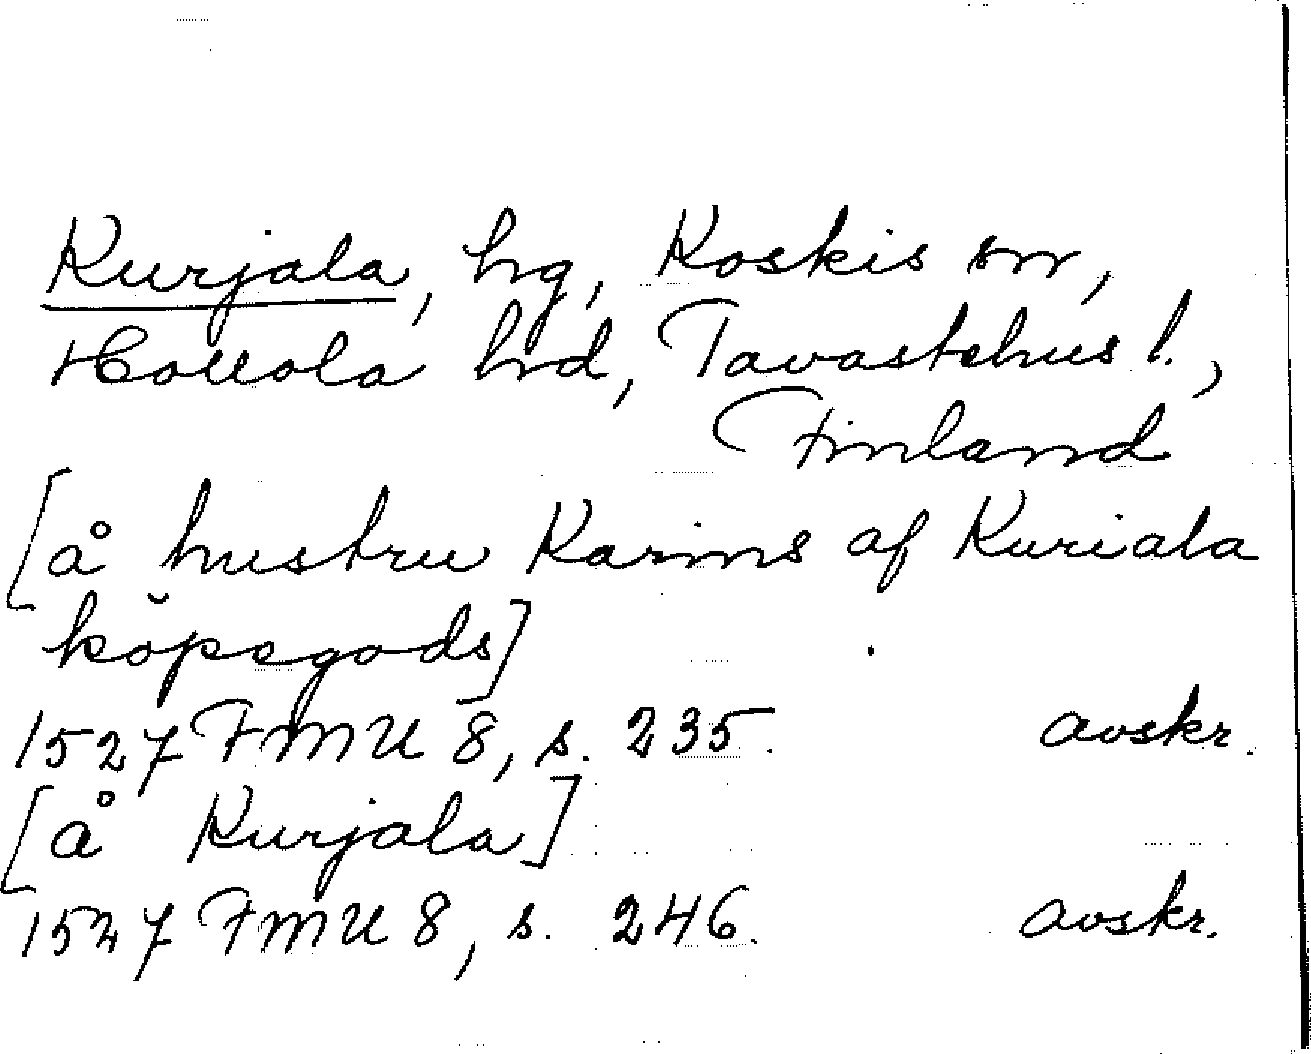 Kurjala, hg, Koskis sn,
Hollola hd, Tavastehus l.,
Finland
[å hustru Karins af Kuriala
köpegods]
1527 FMU 8, s. 235. avskr.
[å Kurjala]
1527 FMU 8, s. 246. avskr.